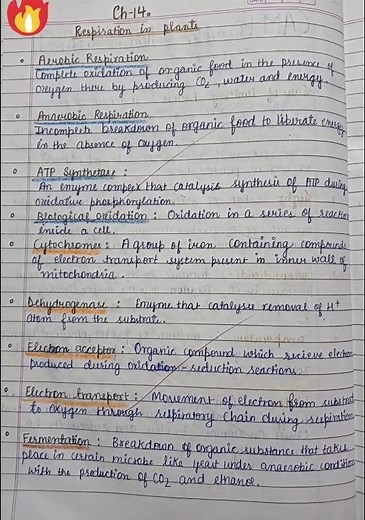 Ch-14.
Respiration in plants
• Aerobic Respiration
Complete oxidation of organic food in the presence of
oxygen there by producing CO2, water and energy.
• Anaerobic Respiration
Incomplete breakdown of organic food to liberate energy
in the absence of oxygen.
• ATP Synthetase :
An enzyme compex that catalysis synthesis of ATP during
oxidative phosphorylation.
• Biological oxidation : Oxidation in a series of reaction
inside a cell.
• Cytochromes : A group of iron containing compounds
of electron transport system present in inner wall of
mitochondria.
• Dehydrogenase : Enzyme that catalyse removal of H+
atom from the substrate.
• Electron acceptor : Organic compound which recieve electron
produced during oxidation-reduction reactions
• Electron transport : Movement of electron from substrate
to oxygen through respiratory chain during respiration.
• Fermentation : Breakdown of organic substance that takes
place in certain microbe like yeast under anaerobic condition
with the production of CO2 and ethanol.